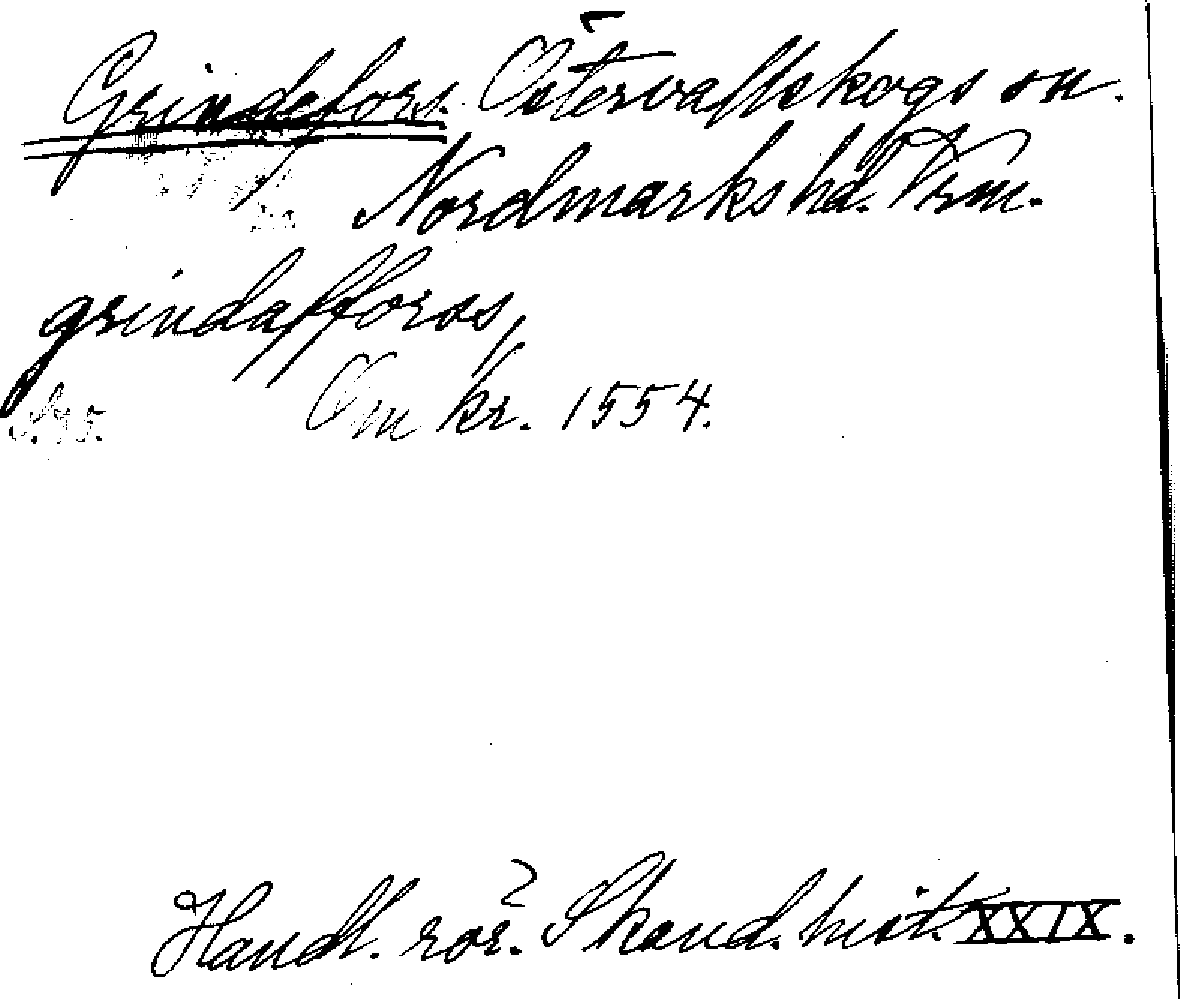 Grindefors. Östervallskogs sn.
Nordmarks hd. Vrm.
grindafforss,
Om kr. 1554.
Handl. rör. Skand. hist. XXIX.